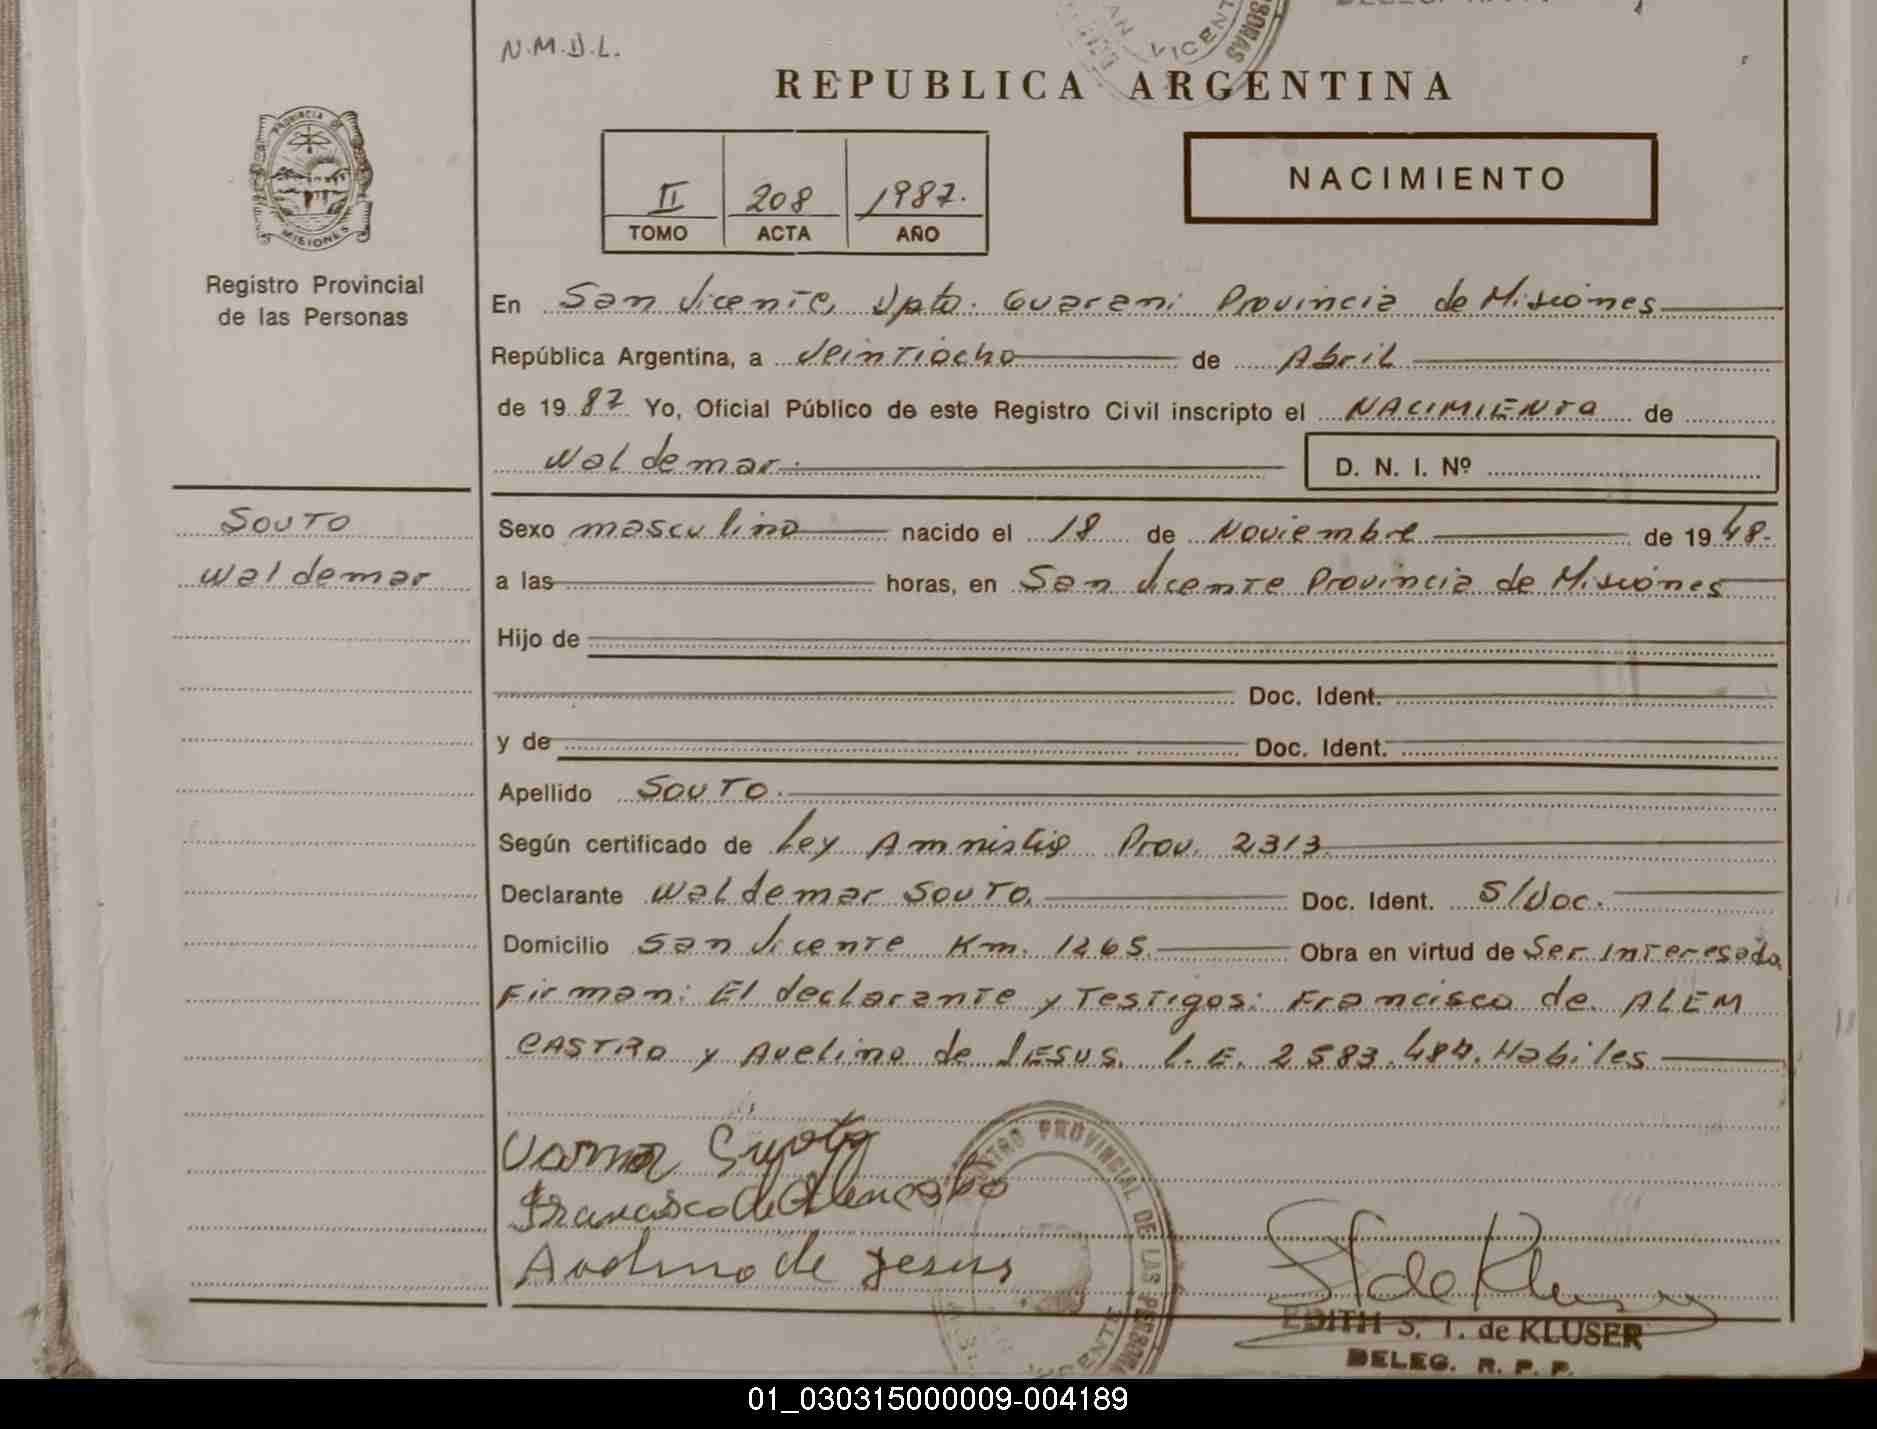 N.M.D.L.
SAN VICENTE
REPUBLICA ARGENTINA
PROVINCIA DE MISIONES
II 208 1987.
TOMO ACTA AÑO
NACIMIENTO
Registro Provincial
de las Personas
En San Vicente, Dpto. Guarani Provincia de Misiones
República Argentina, a Veintiocho de Abril
de 19 87 Yo, Oficial Público de este Registro Civil inscripto el NACIMIENTO de
Waldemar.
D. N. I. Nº
Souto
Waldemar
Sexo masculino nacido el 18 de Noviembre de 19 48.
a las horas, en San Vicente Provincia de Misiones
Hijo de
Doc. Ident.
y de Doc. Ident.
Apellido Souto.
Según certificado de Ley Amnistia Prov. 2313
Declarante Waldemar Souto. Doc. Ident. S/Doc.
Domicilio San Vicente Km. 1265. Obra en virtud de Ser Interesado
Firman: El declarante y Testigos: Francisco de ALEM
CASTRO y Avelino de JESUS. L.E. 2583.484. Habiles
Francisco de
Avelino de Jesus
PROVINCIAL DE LAS
EDITH S. T. de KLUSER
DELEG. R. P. P.
01_030315000009-004189